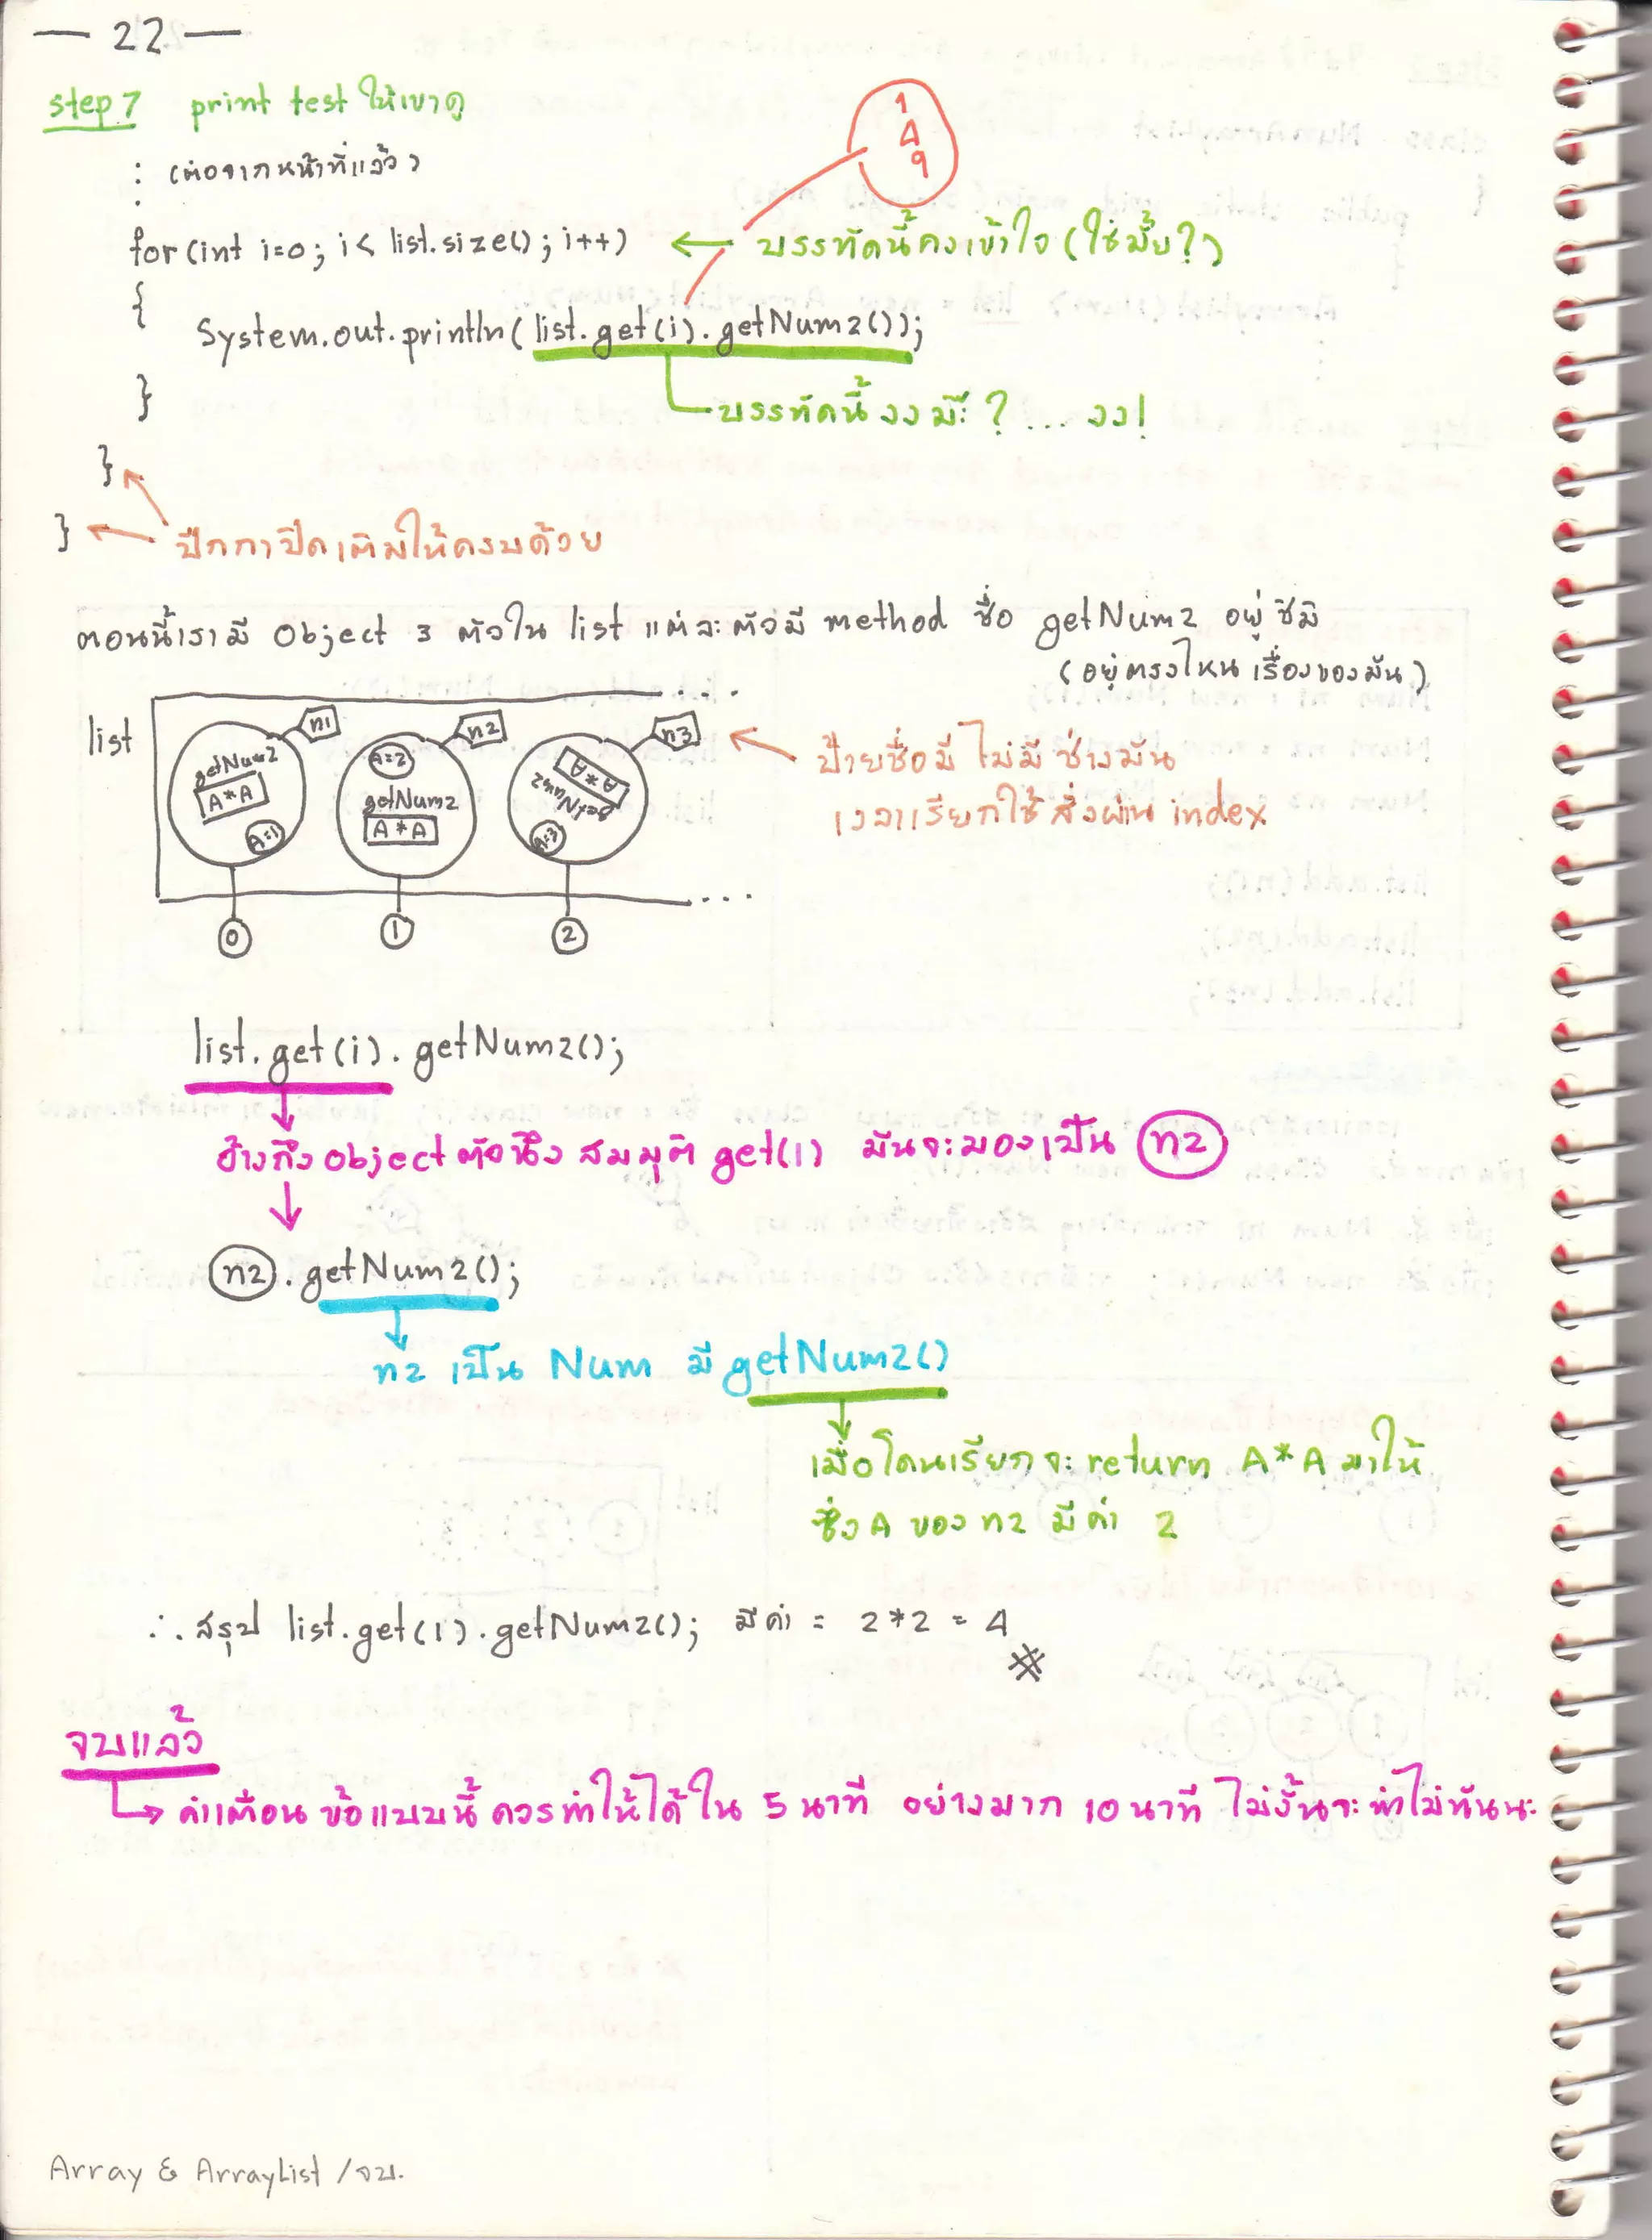 — 22 —
step 7 print test ให้เขาดู
: (ต่อจากหน้าที่แล้ว)
:
for(int i=0; i< list.size(); i++) ← บรรทัดนี้คงเข้าใจ (ใช่มั้ย?)
1
4
9
{
System.out.println(list.get(i).getNum2());
}
บรรทัดนี้ งงมั๊ะ? ... งง!
}
} ← ปีกกาปิดเติมให้ครบด้วย
ตอนนี้เรามี Object 3 ตัวใน list แต่ละตัวมี method ชื่อ getNum2 อยู่ชิมิ
(อยู่ตรงไหน เรื่องของมัน)
list
n1
getNum2
A*A
A=1
n2
A=2
getNum2
A*A
n3
A*A
getNum2
A=3
0
1
2
ป้ายชื่อมี ไม่มี ช่างมัน
เวลาเรียกใช้ สั่งผ่าน index
list.get(i).getNum2();
อ้างถึง object ตัวนึง สมมุติ get(1) มันจะมองเป็น n2
n2.getNum2();
n2 เป็น Num มี getNum2()
เมื่อโดนเรียกจะ return A*A มาให้
ซึ่ง A ของ n2 มีค่า 2
∴ สรุป list.get(1).getNum2(); มีค่า = 2*2 = 4
จบแล้ว
คำเตือน ข้อแบบนี้ควรทำให้ได้ใน 5 นาที อย่างมาก 10 นาที ไม่งั้นจะทำไม่ทันนะ
Array & ArrayList /จบ.